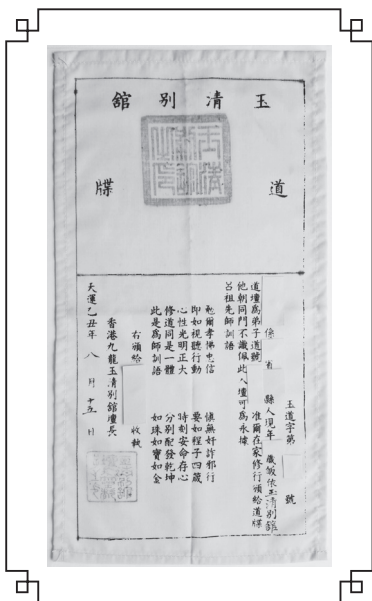 玉清別舘
道牒
玉道字第 號
係 省 縣人現年 歲皈依玉清別舘
道壇為弟子道號 准爾在家修行頒給道牒
他朝同門不識佩此入壇可為永據
呂祖先師訓語
勉爾孝悌忠信 慎無奸詐邪行
即如視聽行動 要如程子四箴
心性光明正大 時刻安命存心
修道同是一體 分別配發乾坤
此是為師訓語 如珠如寶如金
右頒給 收執
香港九龍玉清別舘壇長
天運乙丑年 八 月 十五 日